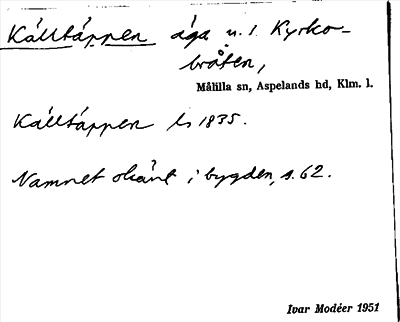 Källtäppen äga u. l. Kyrko-
bråten,
Målilla sn, Aspelands hd, Klm. l.
Källtäppen Ls 1835.
Namnet okänt i bygden, s. 62.
Ivar Modéer 1951